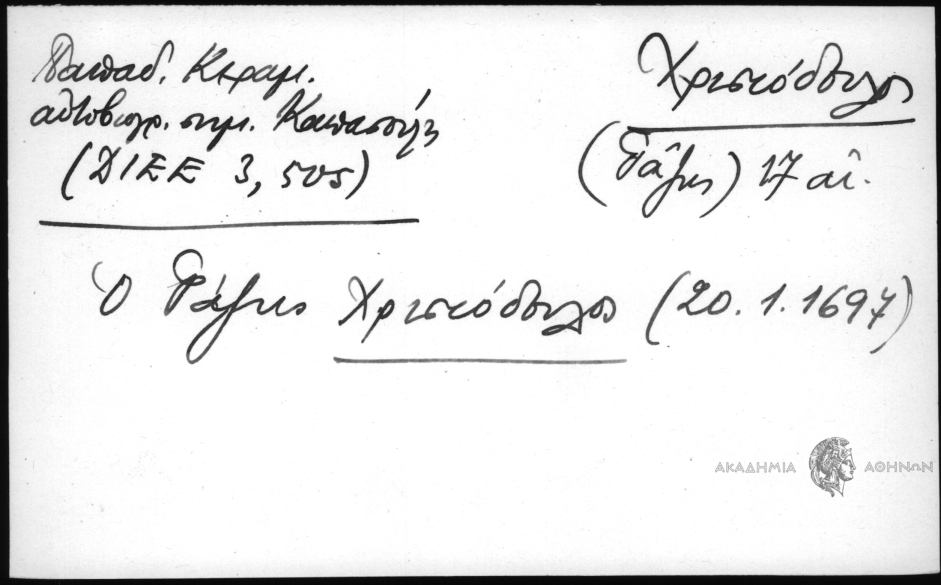 Παπαδ. Κεραμ.
αὐτοβιογρ. σημ. Καπασούλη
(ΔΙΕΕ 3, 505)
Χριστόδουλος
(Ράζης) 17 αἰ.
Ὁ Ράζης Χριστόδουλος (20.1.1697)
ΑΚΑΔΗΜΙΑ ΑΘΗΝΩΝ